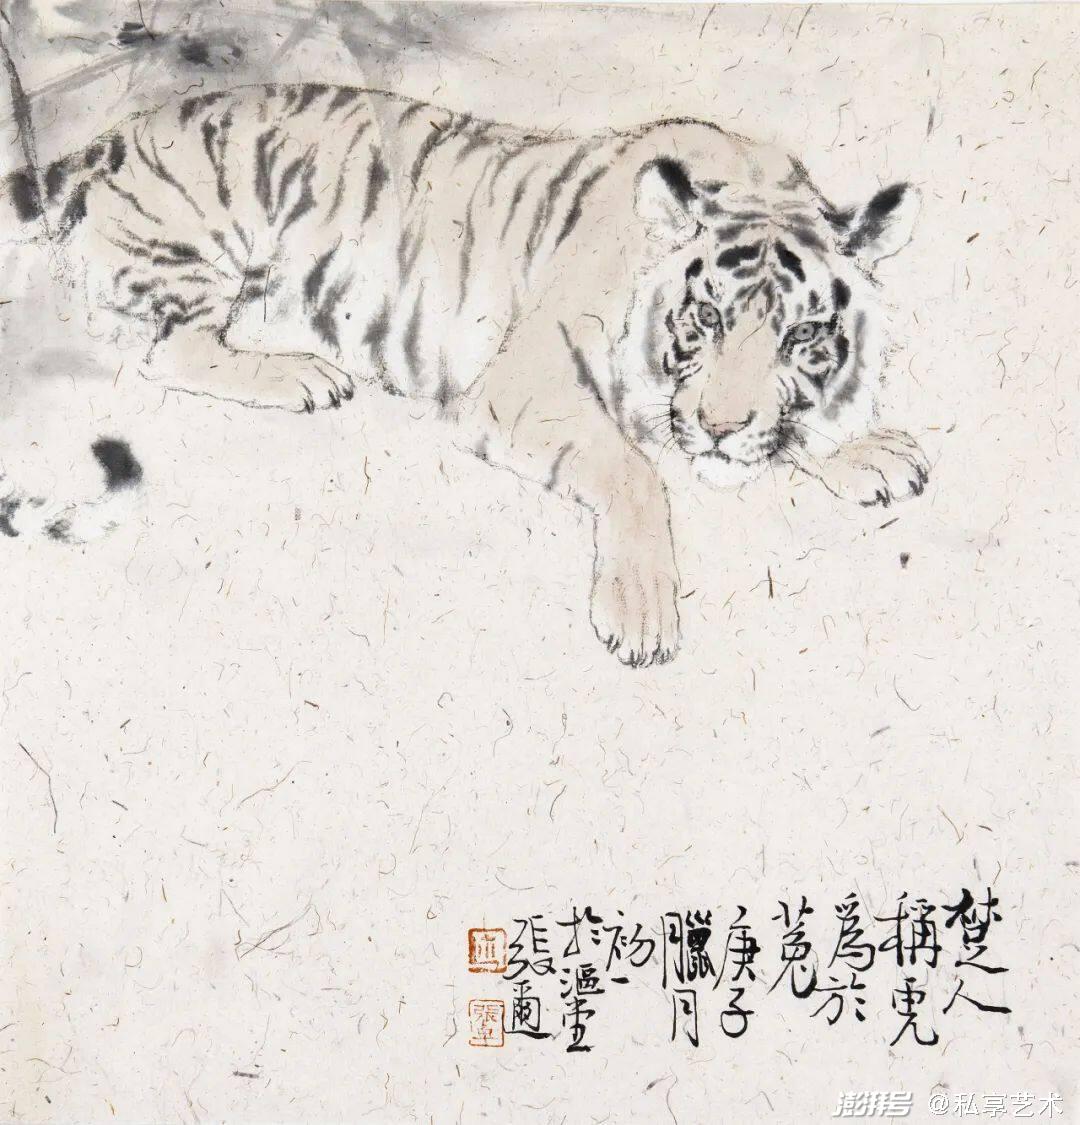 楚人
稱虎
為於
菟
庚子
臘月
初一
於漚堂
張爾
張卓
澎湃号 @私享艺术